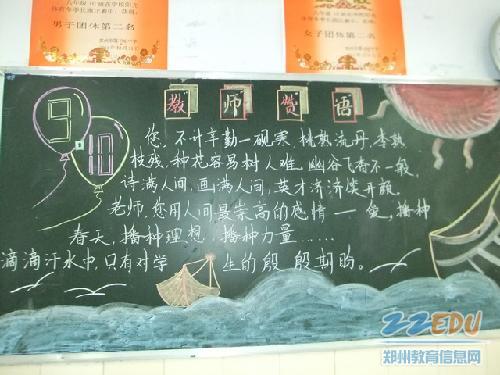 男子团体第二名
女子团体第二名
教师赞语
9
10
您,不计辛勤一砚寒,桃熟流丹,李熟
枝残,种花容易树人难。幽谷飞香不一般,
诗满人间,画满人间,英才济济笑开颜。
老师,您用人间最崇高的感情——爱,播种
春天,播种理想,播种力量……
滴滴汗水中,只有对学生的殷殷期盼。
ZZEDU
郑州教育信息网